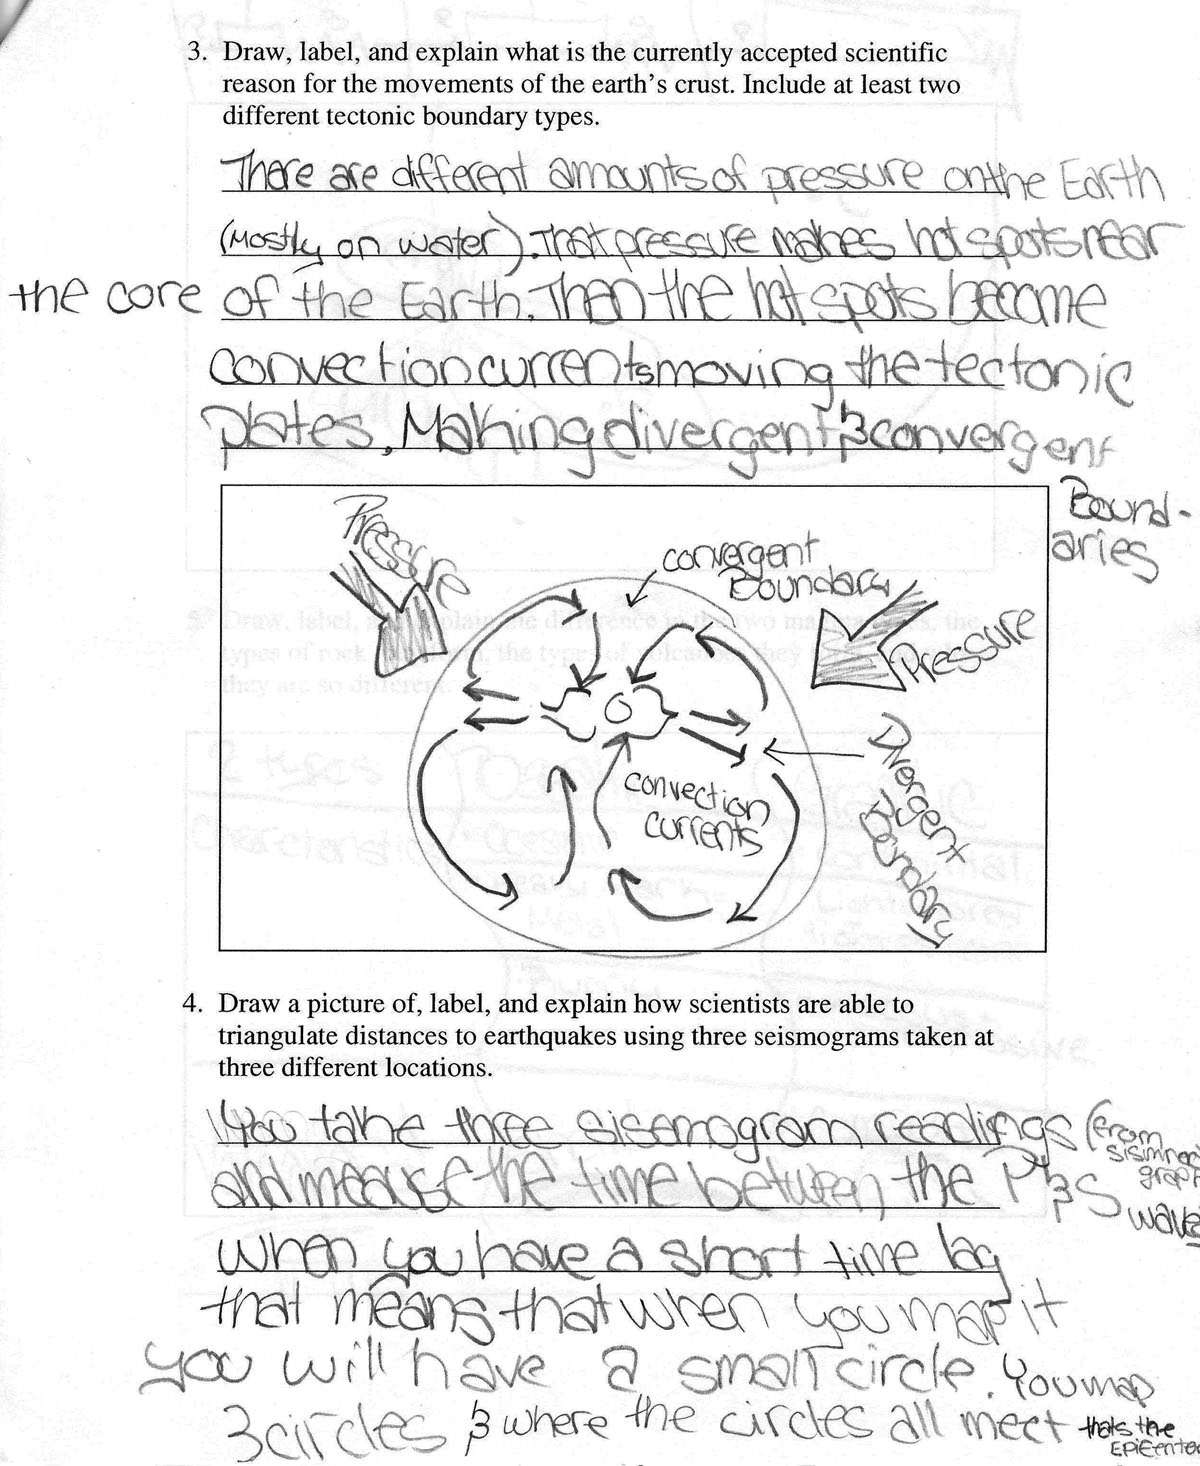 3. Draw, label, and explain what is the currently accepted scientific
reason for the movements of the earth's crust. Include at least two
different tectonic boundary types.
There are different amounts of pressure on the Earth
(Mostly on water). That pressure makes hot spots near
the core of the Earth. Then the hot spots become
convection currents moving the tectonic
plates. Making divergent & convergent
Bound-
aries
Pressure
convergent
Boundary
Pressure
Divergent
Boundary
convection
currents
4. Draw a picture of, label, and explain how scientists are able to
triangulate distances to earthquakes using three seismograms taken at
three different locations.
You take three sisemogram readings (from
and measure the time between the P & S wave
when you have a short time lag
that means that when you map it
you will have a small circle. You map
3 circles & where the circles all meet thats the
EPiCenter